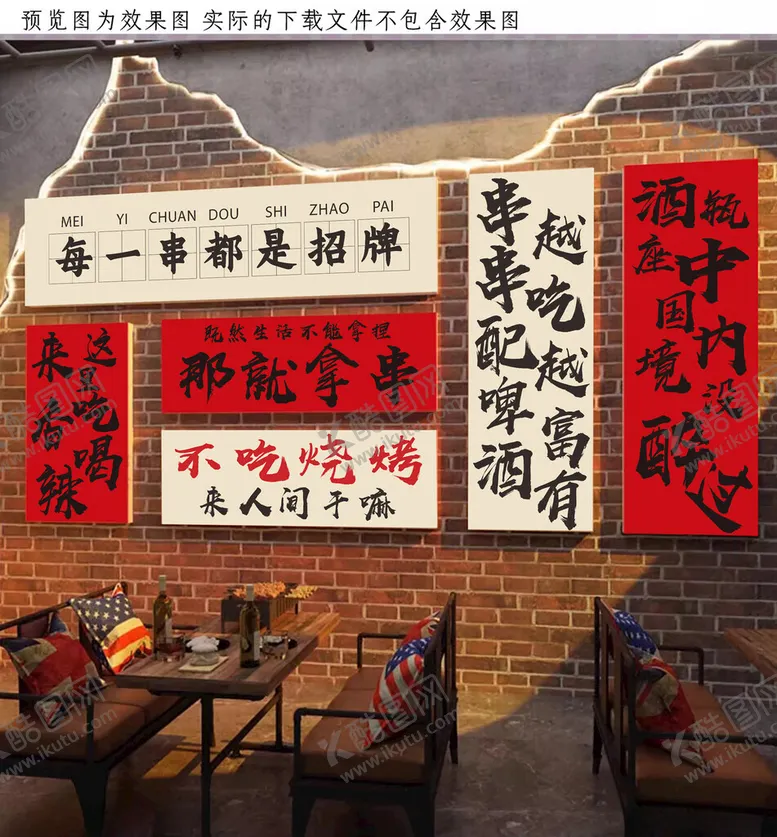 预览图为效果图 实际的下载文件不包含效果图
MEI YI CHUAN DOU SHI ZHAO PAI
每一串都是招牌
来这里
吃香
喝辣
既然生活不能拿捏
那就拿串
不吃烧烤
来人间干嘛
串串配啤酒
越吃越富有
酒瓶座
中国境内
没醉过
酷图网
www.ikutu.com